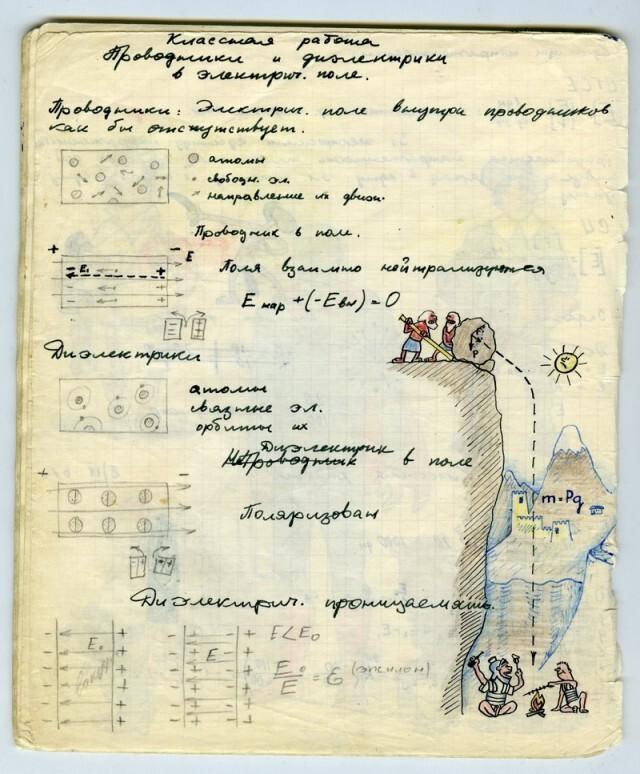 Классная работа
Проводники и диэлектрики
в электрич. поле.
Проводники: Электрич. поле внутри проводников
как бы отстутствует.
атомы
свободн. эл.
направление их движ.
Проводник в поле.
+ − E
− E₁ +
Поля взаимно нейтрализуются
E нар + (-E вн) = 0
P
Диэлектрики
атомы
связные эл.
орбиты их
Диэлектрик
в поле
+ −
m=Pg
Поляризован
Диэлектрич. проницаемять.
E₀
E
E<E₀
E₀/E = ε (эпсилон)